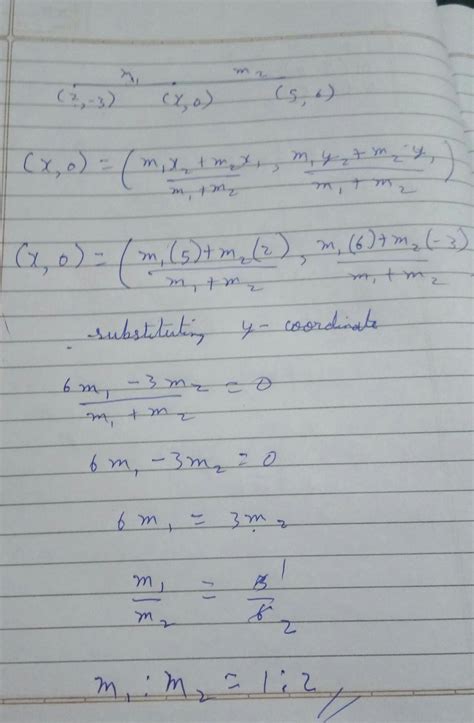 m₁ m₂
(2,-3) (x,0) (5,6)
(x,0) = (m₁x₂+m₂x₁/m₁+m₂, m₁y₂+m₂y₁/m₁+m₂)
(x,0) = (m₁(5)+m₂(2)/m₁+m₂, m₁(6)+m₂(-3)/m₁+m₂)
substituting y-coordinate
6m₁-3m₂/m₁+m₂ = 0
6m₁-3m₂=0
6m₁ = 3m₂
m₁/m₂ = 3/6 1/2
m₁:m₂=1:2//